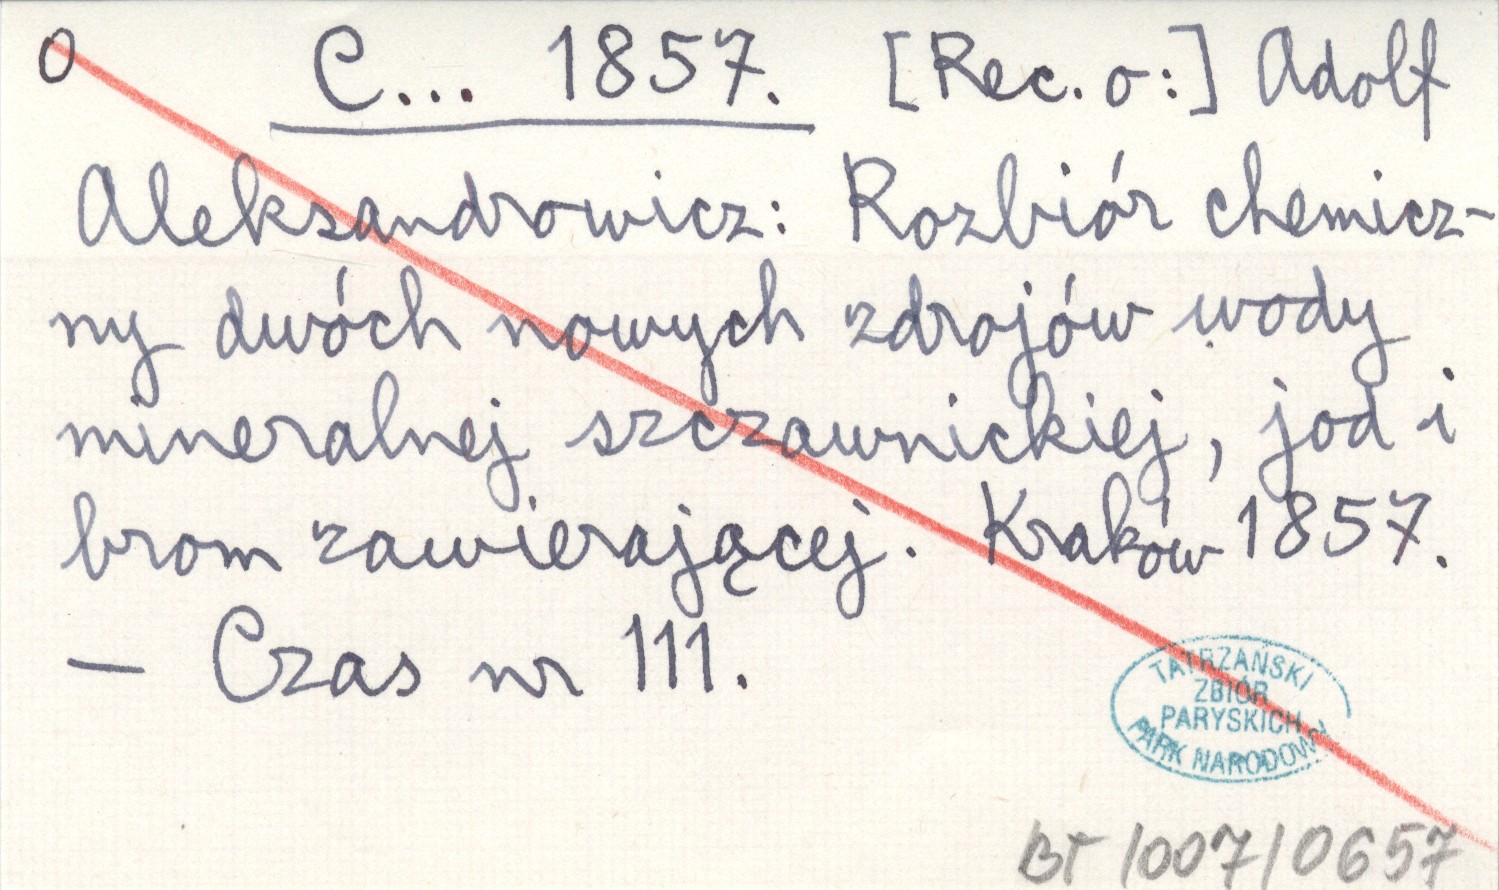 0 C... 1857. [Rec. o:] Adolf
Aleksandrowicz: Rozbiór chemicz-
ny dwóch nowych zdrojów wody
mineralnej szczawnickiej, jod i
brom zawierającej. Kraków 1857.
— Czas nr 111.
TATRZAŃSKI
ZBIÓR
PARYSKICH
PARK NARODOWY
BT/007/0657